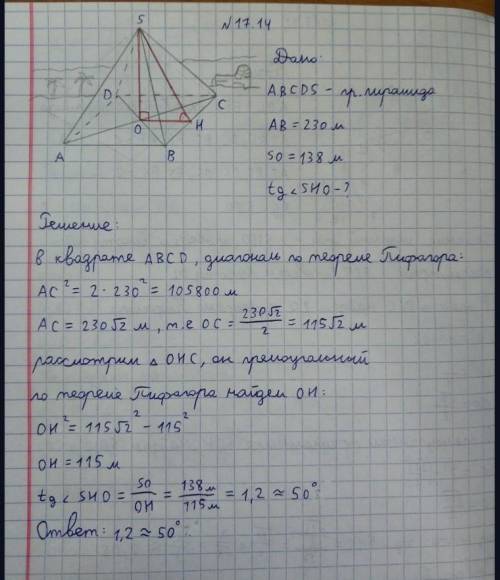 №17.14
S
D
C
O
H
A
B
Дано:
ABCDS - пр. пирамида
AB = 230 м
SO = 138 м
tg < SHO - ?
Решение:
В квадрате ABCD, диагональ по теореме Пифагора:
AC² = 2 · 230² = 105800 м
AC = 230√2 м, т.е OC = 230√2/2 = 115√2 м
рассмотрим △ OHC, он прямоугольный
по теореме Пифагора найдем OH:
OH² = 115√2² - 115²
OH = 115 м
tg < SHO = SO/OH = 138м/115м = 1,2 ≈ 50°
Ответ: 1,2 ≈ 50°